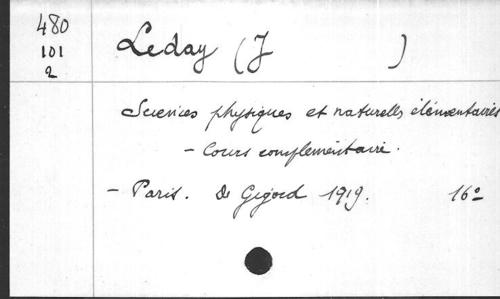 480
101
2
Leday (J )
Sciences physiques et naturelles élémentaires
- Cours complémentaire.
- Paris. De Gigord 1919. 16º